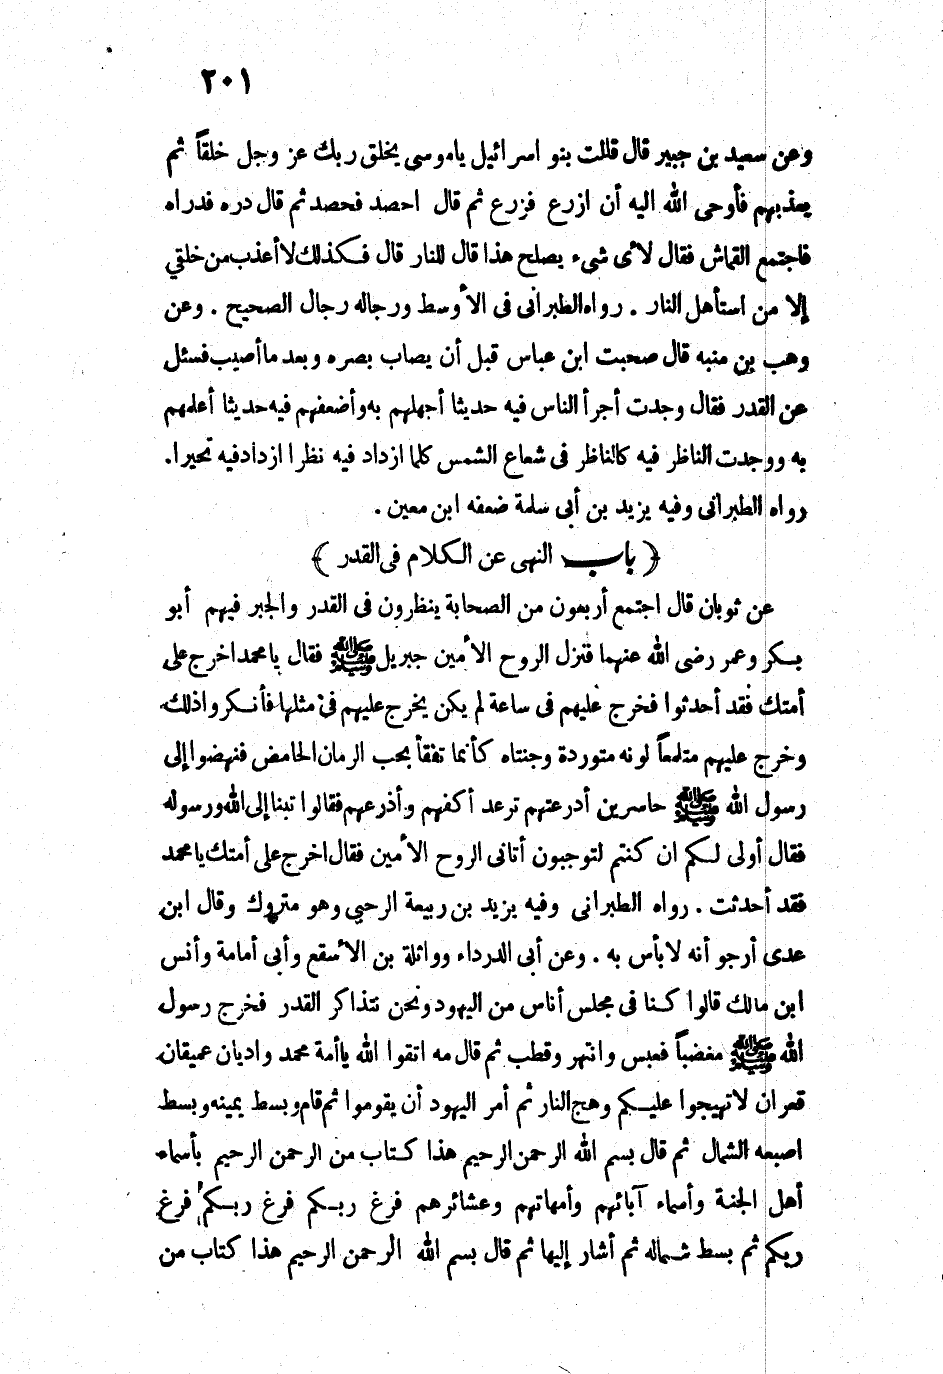 ٢٠١
وعن سعيد بن جبير قال قالت بنو اسرائيل ياموسى يخلق ربك عز وجل خلقاً ثم
يعذبهم فأوحى الله اليه أن ازرع فزرع ثم قال احصد فحصد ثم قال دره فدراه
فاجتمع القماش فقال لأى شىء يصلح هذا قال للنار قال فكذلك لا أعذب من خلقي
إلا من استأهل النار . رواه الطبرانى فى الأوسط ورجاله رجال الصحيح . وعن
وهب بن منبه قال صحبت ابن عباس قبل أن يصاب بصره وبعد ما أصيب فسئل
عن القدر فقال وجدت أجرأ الناس فيه حديثا أجهلهم به وأضعفهم فيه حديثا أعلمهم
به ووجدت الناظر فيه كالناظر فى شعاع الشمس كلما ازداد فيه نظرا ازداد فيه تحيرا.
رواه الطبرانى وفيه يزيد بن أبى سلمة ضعفه ابن معين .
﴿ باب النهى عن الكلام فى القدر ﴾
عن ثوبان قال اجتمع أربعون من الصحابة ينظرون فى القدر والجبر فيهم أبو
بكر وعمر رضى الله عنهما فنزل الروح الأمين جبريل ﷺ فقال يا محمد اخرج على
أمتك فقد أحدثوا فخرج عليهم فى ساعة لم يكن يخرج عليهم فى مثلها فأنكروا ذلك
وخرج عليهم متلمعاً لونه متوردة وجنتاه كأنما تفقأ بحب الرمان الحامض فنهضوا إلى
رسول الله ﷺ حاسرين أذرعتهم ترعد أكفهم وأذرعهم فقالوا تبنا إلى الله ورسوله
فقال أولى لكم ان كنتم لتوجبون أتانى الروح الأمين فقال اخرج على أمتك يا محمد
فقد أحدثت . رواه الطبرانى وفيه يزيد بن ربيعة الرحبي وهو متروك وقال ابن
عدى أرجو أنه لا بأس به . وعن أبى الدرداء وواثلة بن الأسقع وأبى أمامة وأنس
ابن مالك قالوا كنا فى مجلس أناس من اليهود ونحن نتذاكر القدر فخرج رسول
الله ﷺ مغضباً فعبس وانتهر وقطب ثم قال مه اتقوا الله يا أمة محمد واديان عميقان
قعران لا تهيجوا عليكم وهج النار ثم أمر اليهود أن يقوموا ثم قام وبسط يمينه وبسط
اصبعه الشمال ثم قال بسم الله الرحمن الرحيم هذا كتاب من الرحمن الرحيم بأسماء
أهل الجنة وأسماء آبائهم وأمهاتهم وعشائرهم فرغ ربكم فرغ ربكم فرغ
ربكم ثم بسط شماله ثم أشار إليها ثم قال بسم الله الرحمن الرحيم هذا كتاب من